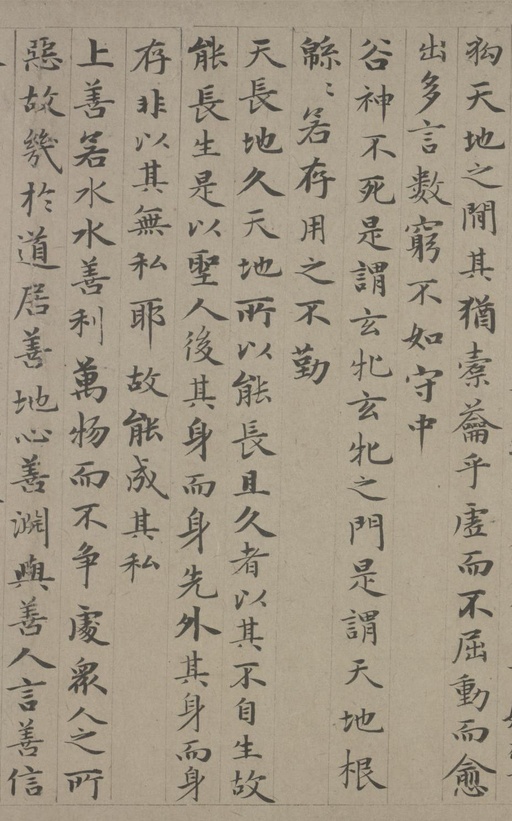 狗天地之間其猶橐籥乎虛而不屈動而愈
出多言數窮不如守中
谷神不死是謂玄牝玄牝之門是謂天地根
緜〻若存用之不勤
天長地久天地所以能長且久者以其不自生故
能長生是以聖人後其身而身先外其身而身
存非以其無私耶故能成其私
上善若水水善利萬物而不爭處衆人之所
惡故幾於道居善地心善淵與善人言善信